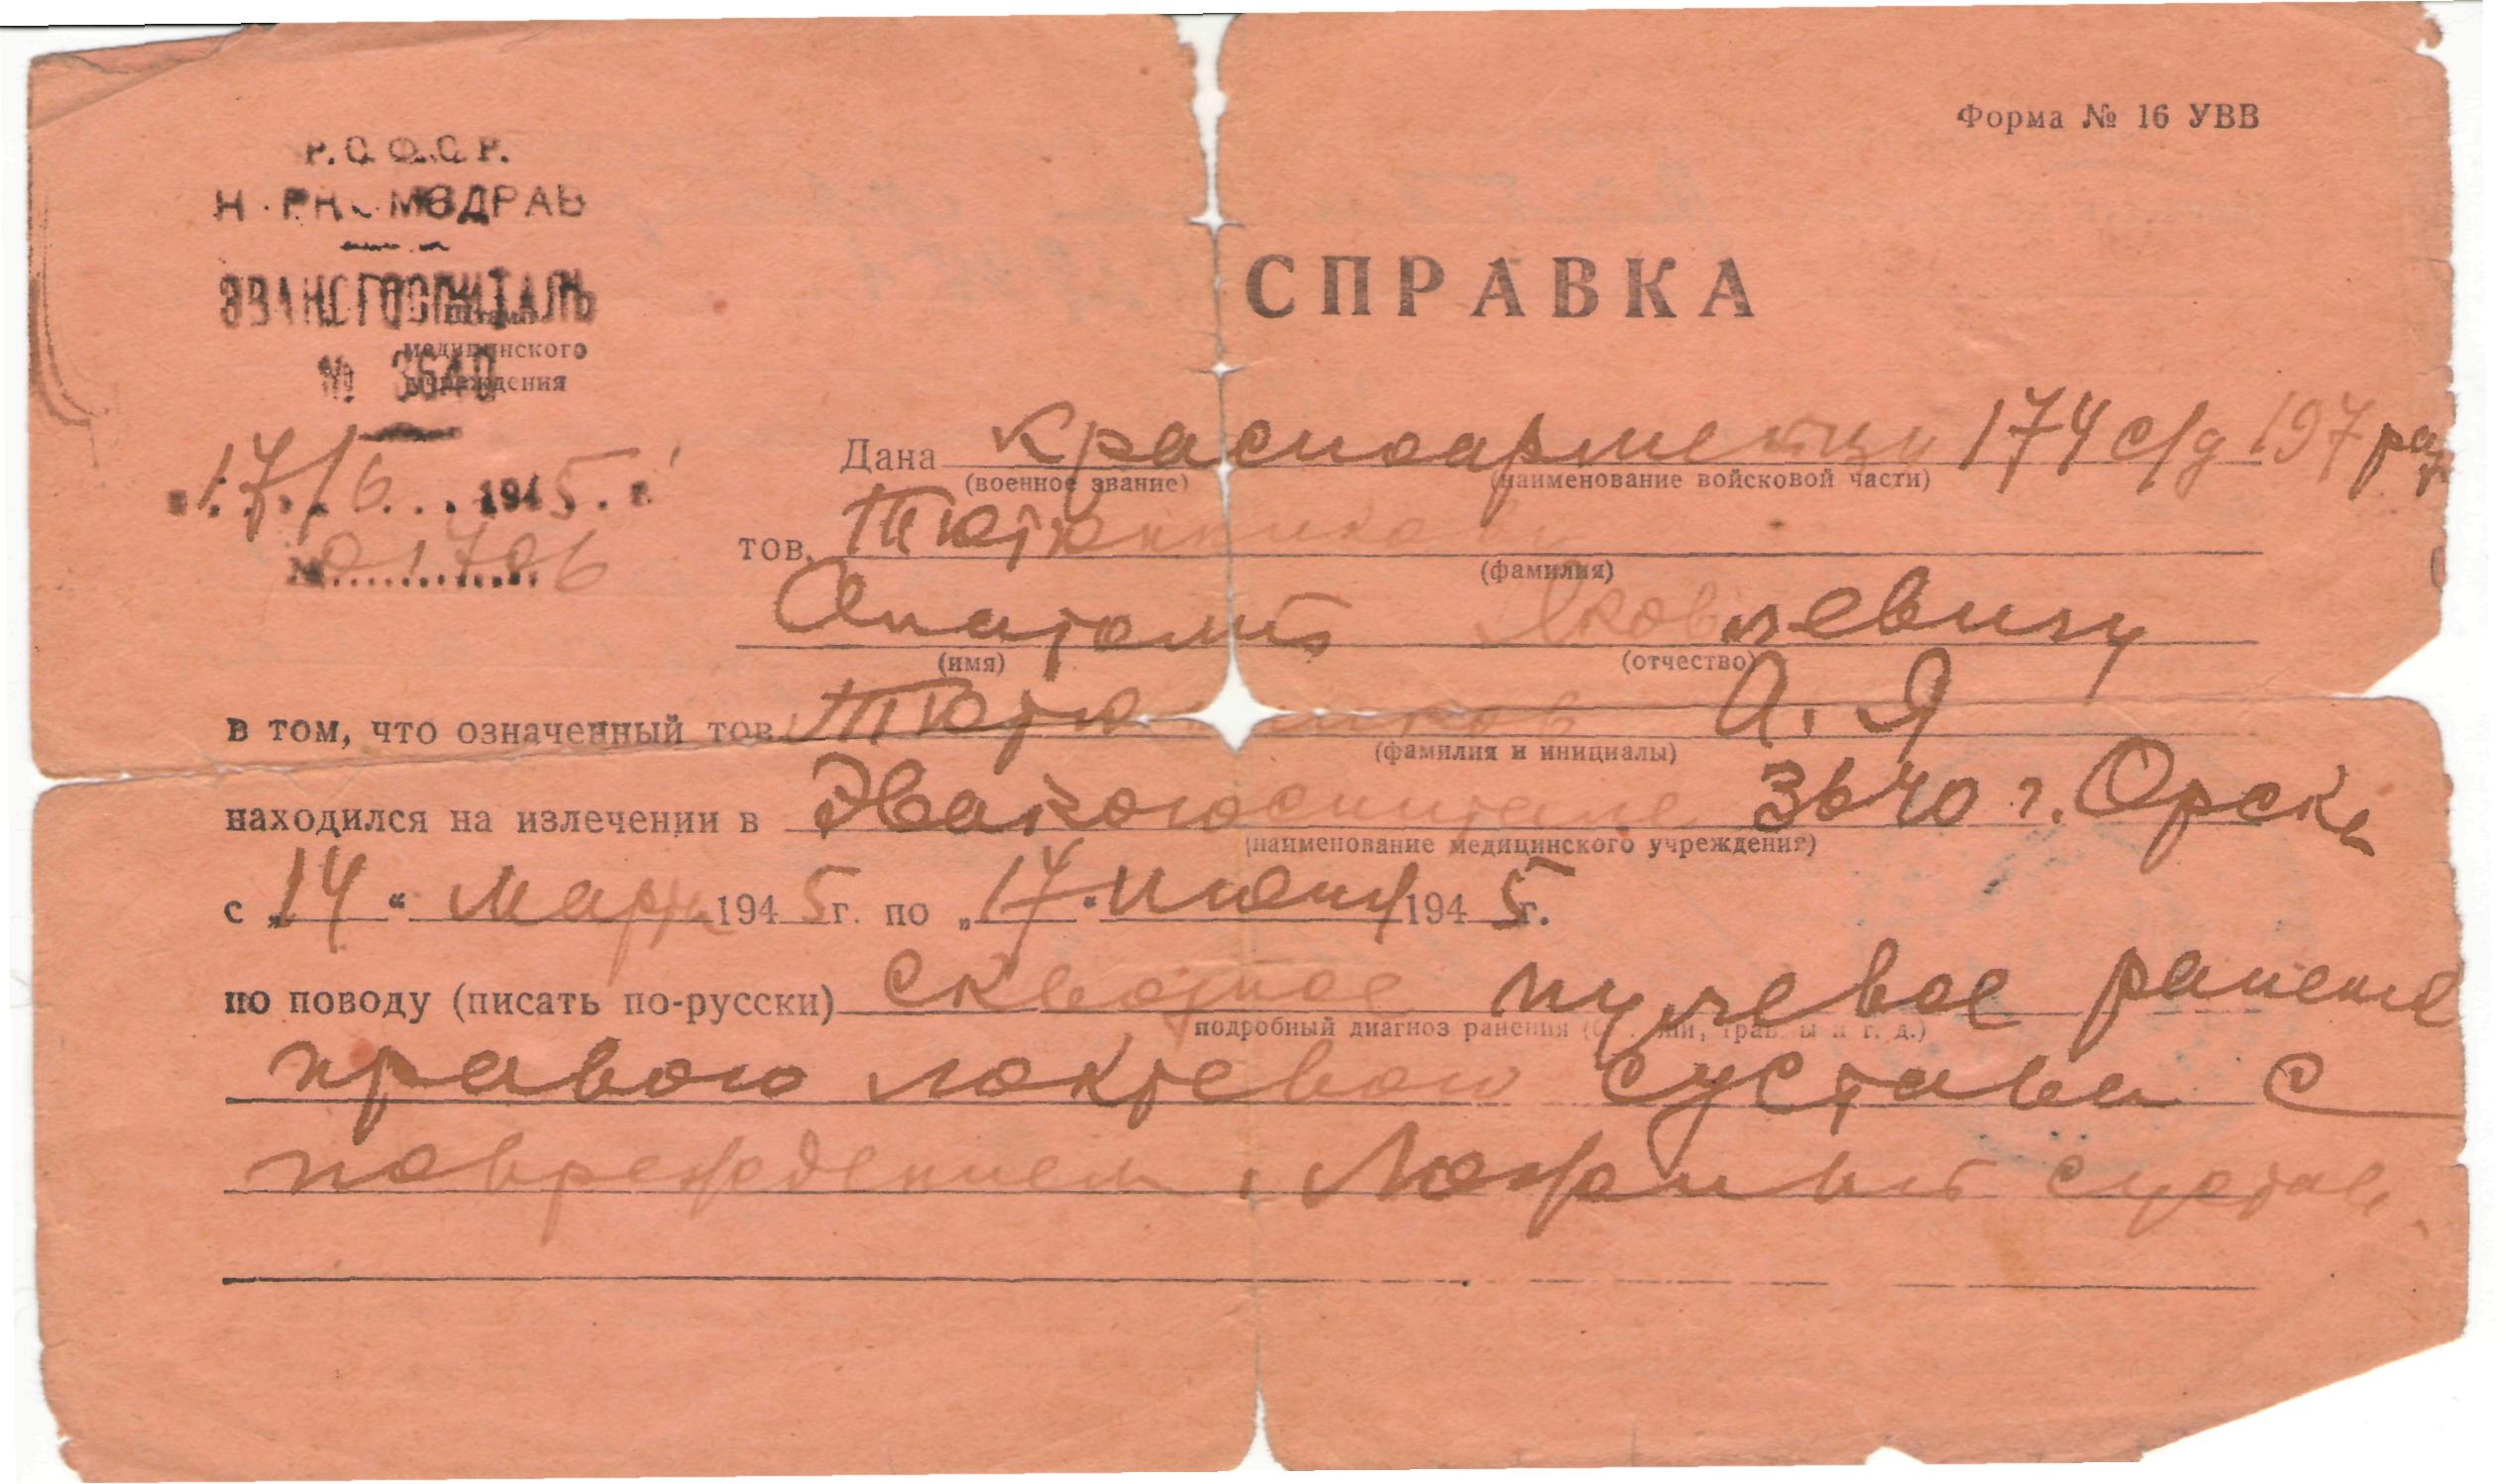 Форма № 16 УВВ
Р. С. Ф. С. Р.
НАРКОМЗДРАВ
ЭВАКОГОСПИТАЛЬ
№ 3640
медицинского
учреждения
17/6 1945 г.
№ 01706
СПРАВКА
Дана Красноармейцу 174 с/д 197
(военное звание) (наименование войсковой части)
тов. Тютюнникову
(фамилия)
Анатолию Яковлевичу
(имя) (отчество)
в том, что означенный тов. Тютюнников А. Я
(фамилия и инициалы)
находился на излечении в Эвакогоспитале 3640 г. Орска
(наименование медицинского учреждения)
с „14“ Марта 1945 г. по „17“ Июня 1945 г.
по поводу (писать по-русски) сквозное пулевое ранение
подробный диагноз ранения
правого локтевого сустава с
повреждением. Ложный сустав.